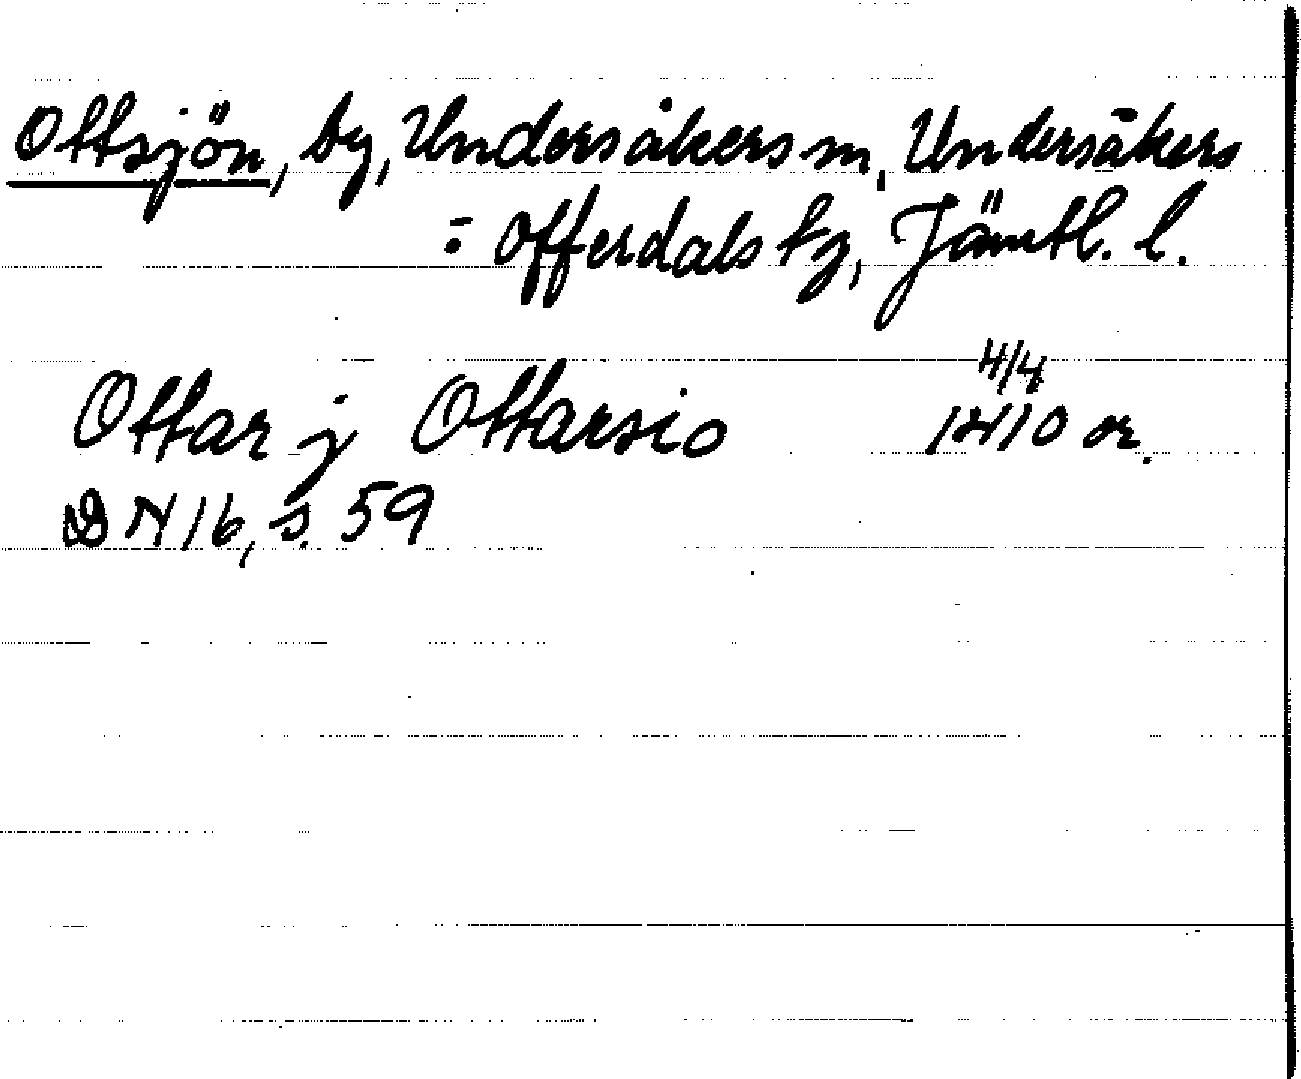 Ottsjön, by, Undersåkers sn, Undersåkers
= Offerdals tg, Jämtl. l.
4/4
Ottar j Ottarsio 1410 or.
DN 16, s. 59